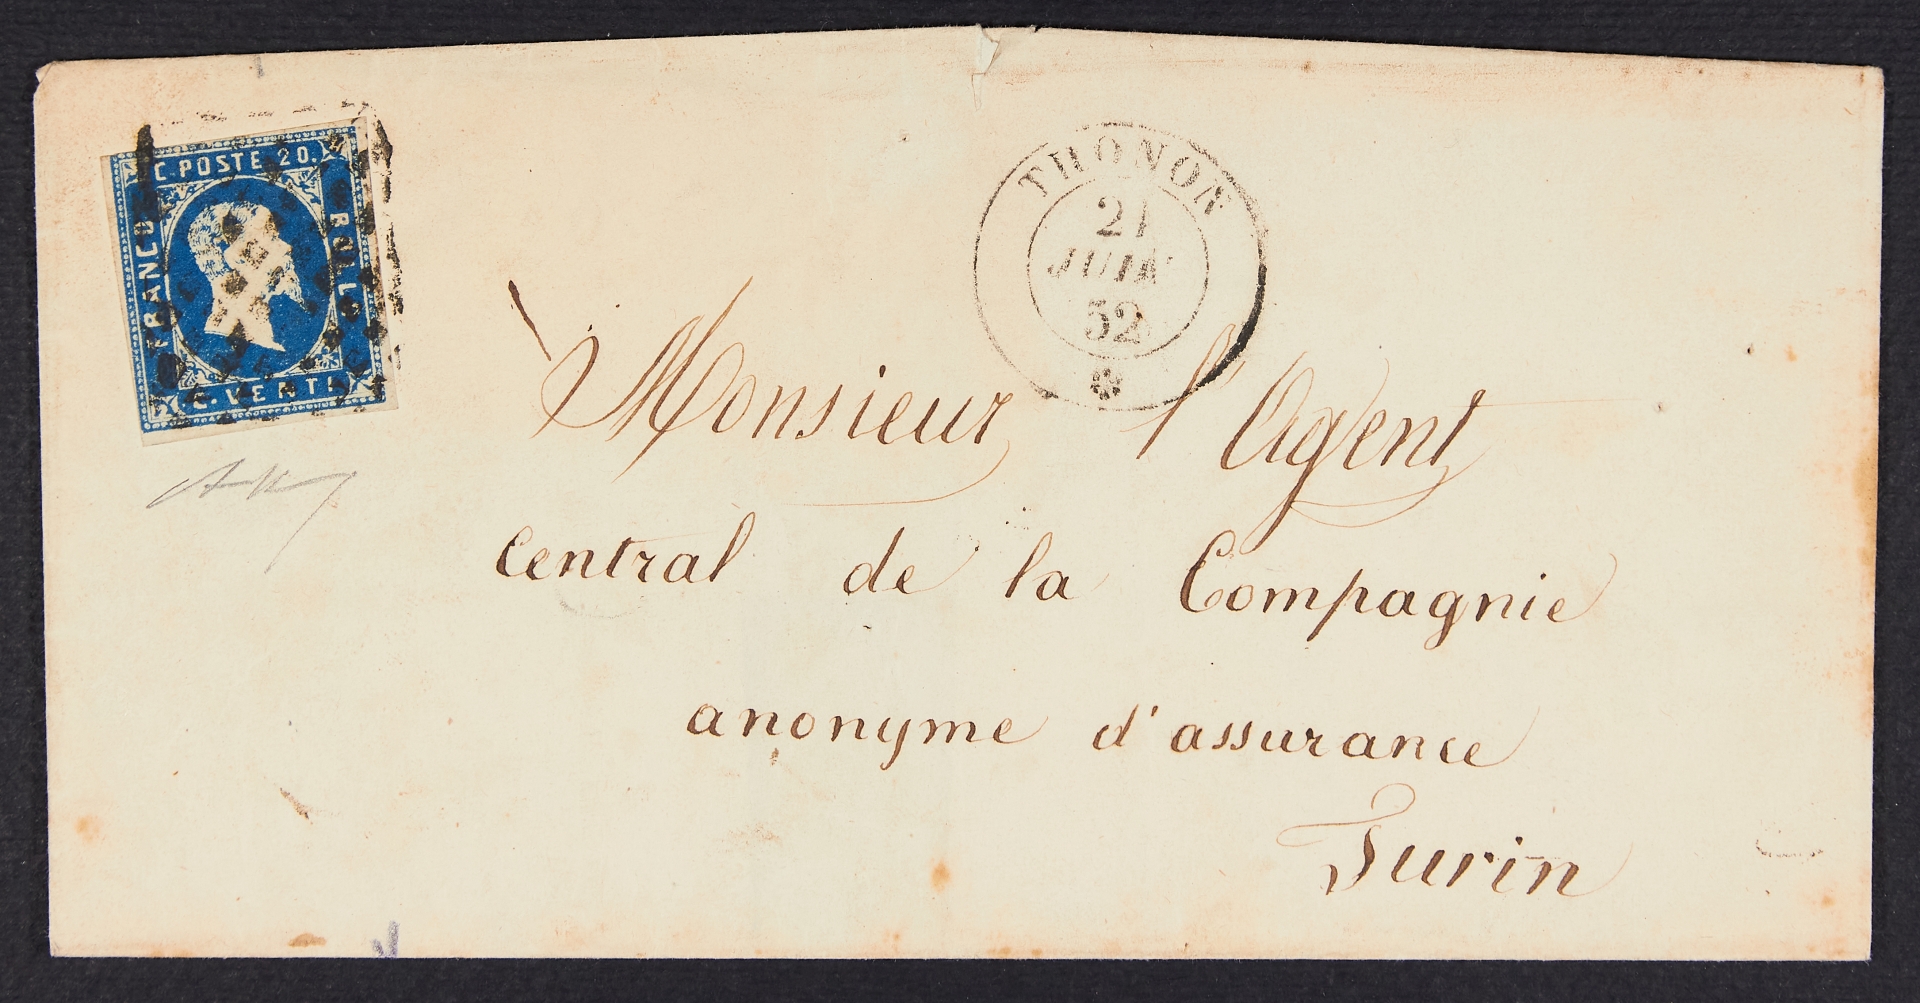 C. POSTE 20.
FRANCO
BOLLO
C. VENTI
THONON
21
JUIN
52
Monsieur l'Agent
Central de la Compagnie
anonyme d'assurance
Turin